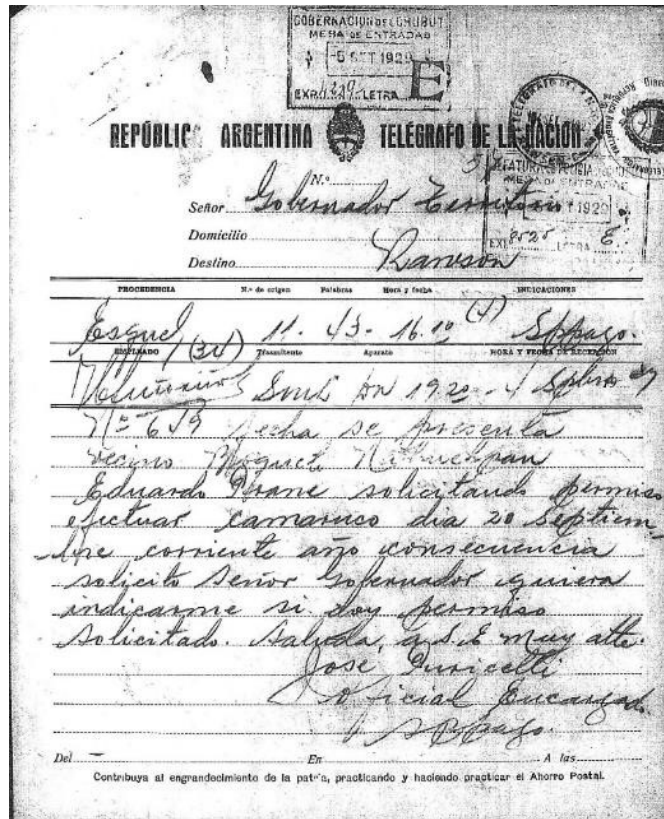 GOBERNACION DEL CHUBUT
MESA DE ENTRADAS
-5 SET 1929
EXP. LETRA E
REPÚBLICA ARGENTINA TELÉGRAFO DE LA NACIÓN
MESA DE ENTRADAS
1929
EXP. 8525 LETRA E
N.º
Señor Gobernador Territorio
Domicilio
Destino Rawson
PROCEDENCIA N.º de origen Palabras Hora y fecha INDICACIONES
Esquel (34) 11. 43- 16.10 (4)
EMPLEADO Trasmitente Aparato HORA Y FECHA DE RECEPCIÓN
19.20 - 4
Nº 649 fecha se presenta
vecino
Eduardo solicitando permiso
efectuar camaruco dia 20 Septiem
bre corriente año consecuencia
solicito Señor Gobernador quiera
indicarme si doy permiso
solicitado. Saluda, a S.E muy atte.
José Puricelli
Oficial Encargado
Del En A las
Contribuya al engrandecimiento de la patria, practicando y haciendo practicar el Ahorro Postal.